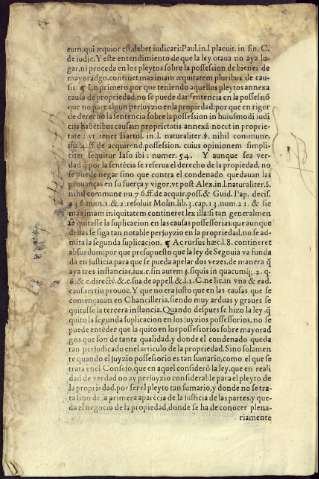 eum, qui æquior est, debet iudicari: Paul. in l. placuit. in fin. C.
de iudic. Y este entendimiento de que la ley otaua no aya lu-
gar, ni proceda en los pleytos sobre la possession de bienes de
mayoradgo, continet maximam æquitatem pluribus de cau-
sis. ¶ Un primero por que teniendo aquellos pleytos annexa
causa de propiedad, no se puede dar sentencia en la possesiõ
que no pare algun perjuyzio en la propiedad: por que en rigor
de derecho la sentencia sobre la possession in huiusmodi iudi-
ciis habentibus causam proprietatis annexã nocet in proprie-
tate: ut inter Bartol. in l. naturaliter. §. nihil commune,
ff. de acquirend. possession. cuius opinionem simpli-
citer sequitur Iaso ibi: numer. 54. Y aunque sea ver-
dad q̃ por la sentẽcia se reserua el derecho de la propiedad, no
se puede negar sino que contra el condenado quedauan las
prouanças en su fuerça y vigor, vt post Alex. in l. naturaliter. §.
nihil commune nu. 76. ff. de acquir. poss. & Guid. Pap. decis.
num. 1. & 2. resoluit Molin. lib. 3. cap. 13. num. 21. & sic
maximam iniquitatem contineret lex illa si tan generalmen-
te quitasse la suplicacion en las causas possessorias: que aunque
de las se siga tan notable perjuyzio en la propiedad, no se ad-
mita la segunda suplicacion. ¶ Ac rursus hæc l. 8. contineret
absurdum: por que presupuesto que la ley de Segouia va funda
da en Iusticia para que se pueda apelar dos vezes, de manera q̃
aya tres instancias,
Y que no era justo que en las causas que se
començauan en Chancilleria, siendo muy arduas y graues se
quitasse la tercera instãcia. Quando despues se hizo la ley.
quito la segunda suplicacion en los Iuyzios possessorios, no se
puede entẽder que la quito en los possessorios sobre mayorad
gos que son de tanta qualidad, y donde el condenado queda
tan perjudicado en el articulo de la propiedad. Sino solamen
te quando el juyzio possessorio es tan sumario, como el que se
trata en el Consejo, que en aquel considerò la ley, que en reali
dad de verdad no ay perjuyzio considerable para el pleyto de
la propiedad, por ser el pleyto tan sumario, y donde no se tra-
ta sino de la primera aparẽcia de la iusticia de las partes, y que-
da el negocio de la propiedad, donde se ha de conocer plena-
riamente